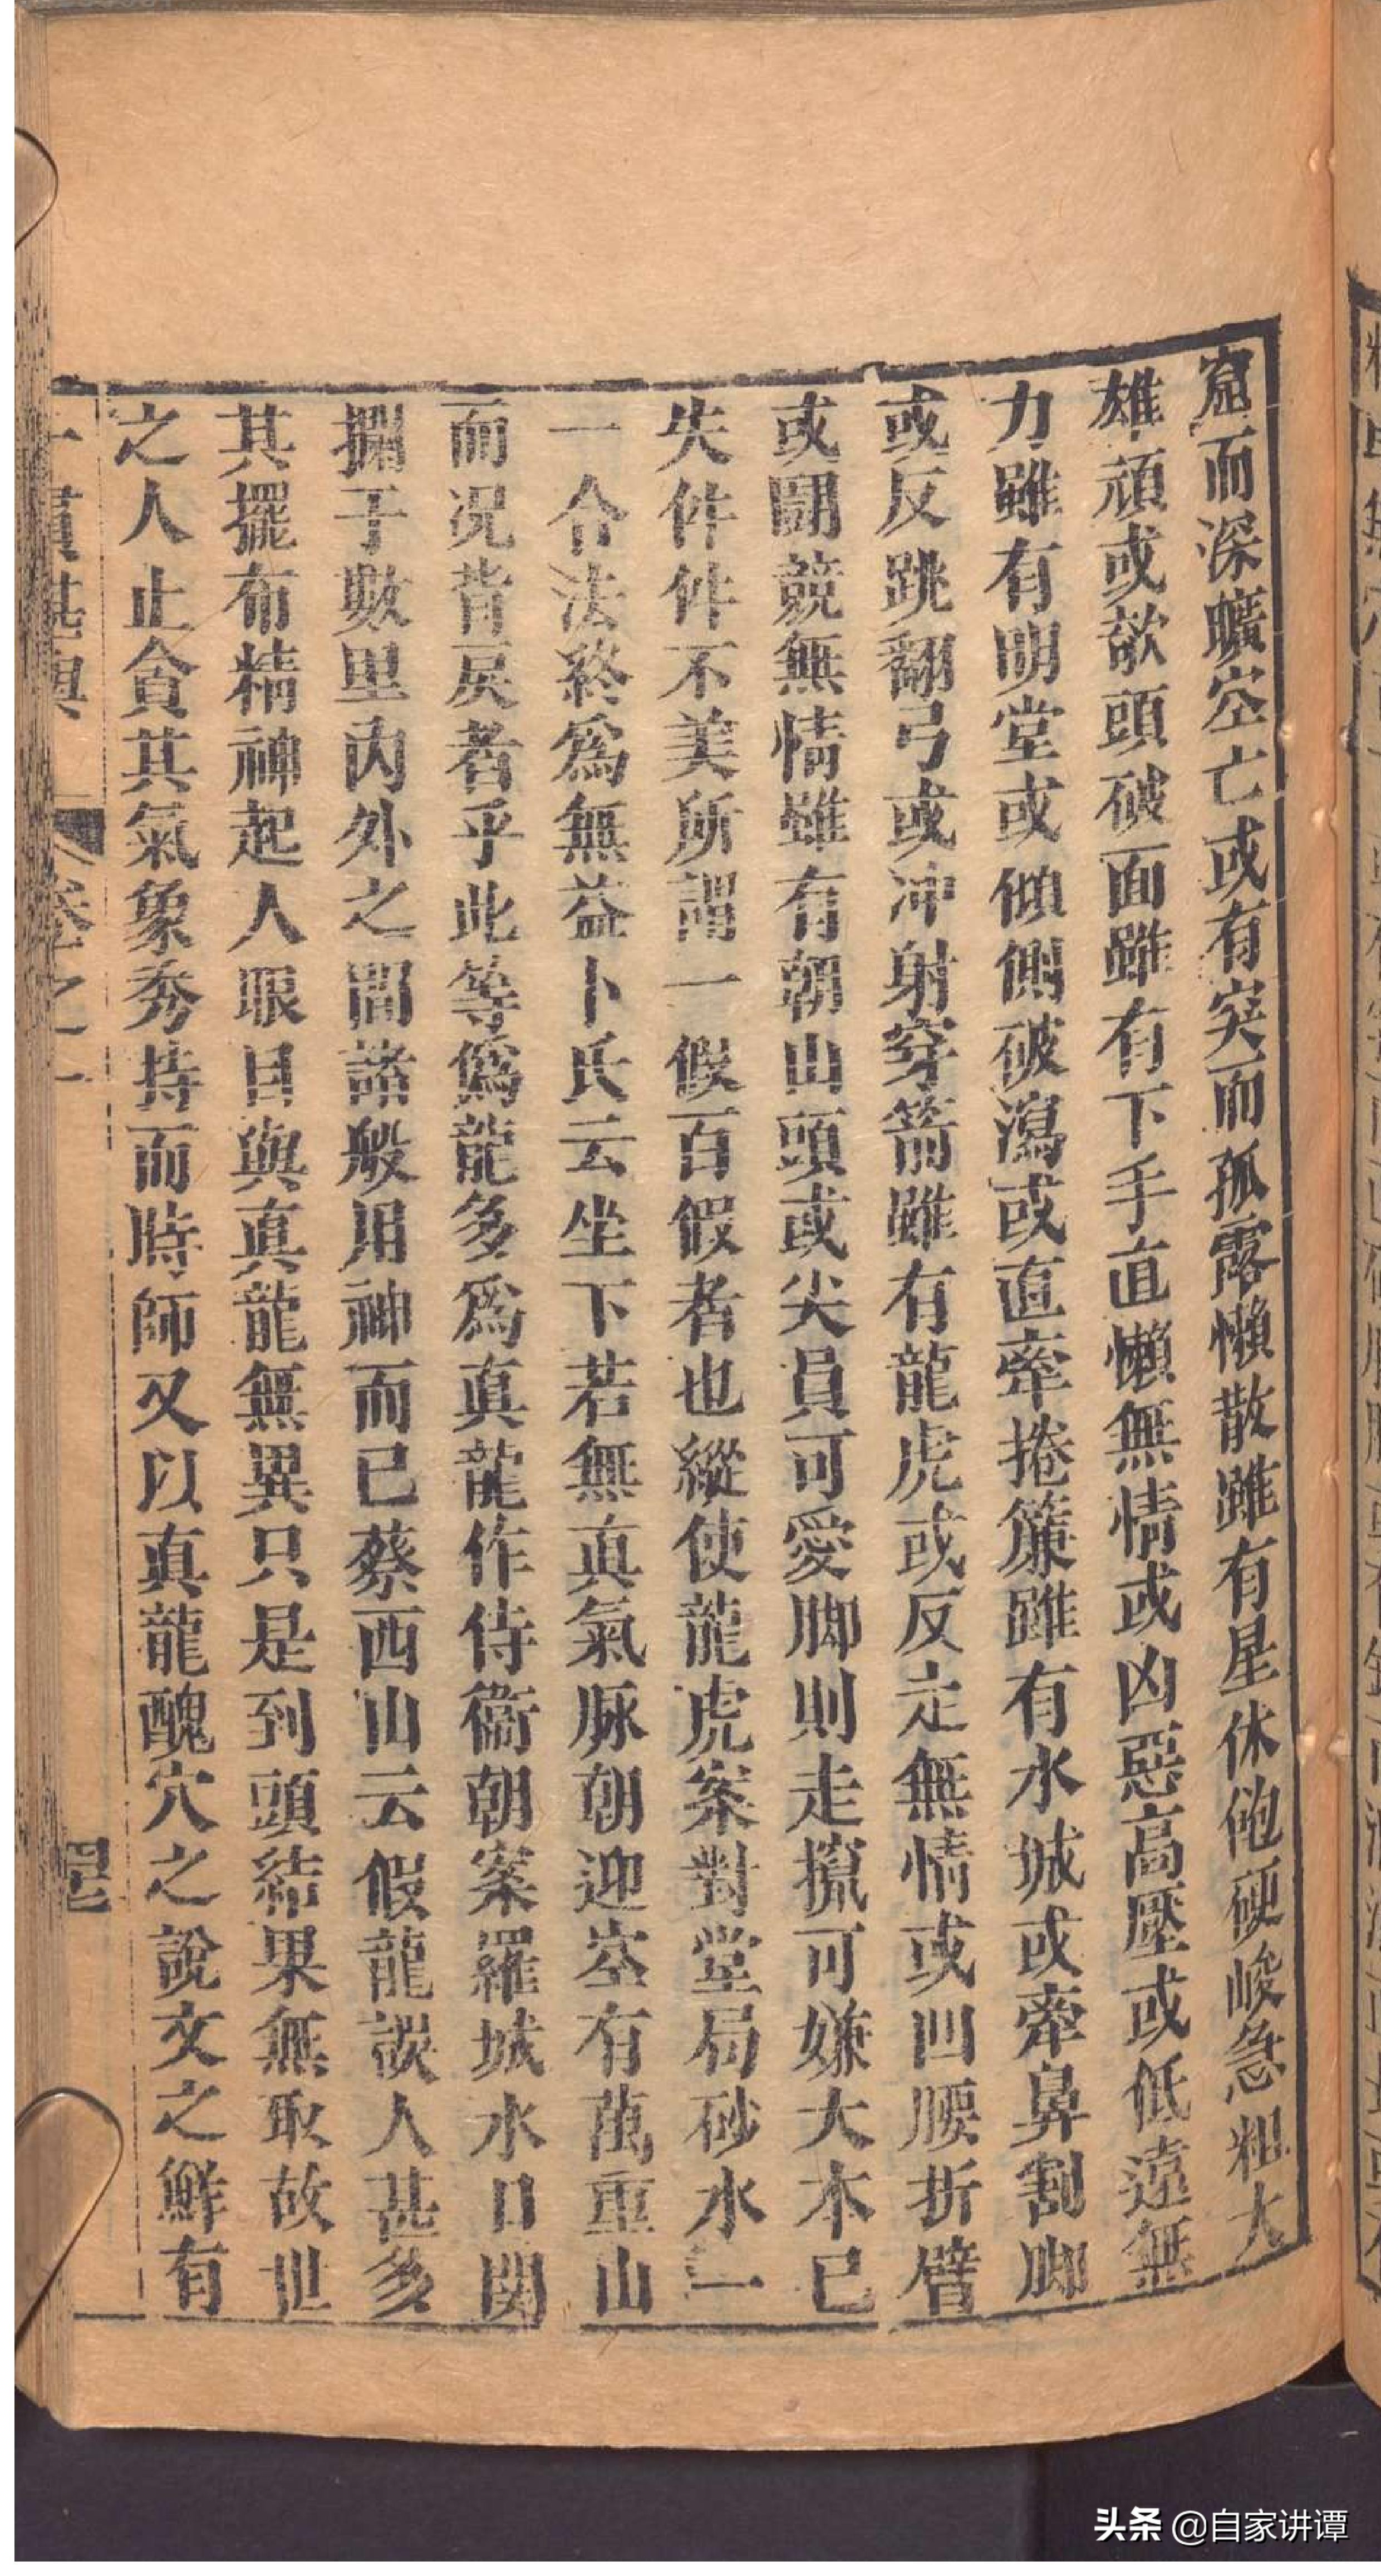 窟而深曠空亡或有突而孤露懶散雖有星休飽硬峻急粗大
雄頑或欹頭破面雖有下手直懶無情或凶惡高壓或低遠無
力雖有明堂或傾側破瀉或直牽捲簾雖有水城或牽鼻割脚
或反跳翻弓或冲射穿箭雖有龍虎或反走無情或凹腰折臂
或鬬競無情雖有朝山頭或尖員可愛脚則走攛可嫌大本已
失件件不美所謂一假百假者也縱使龍虎案對堂局砂水一
一合法終爲無益卜氏云坐下若無真氣脉朝迎空有萬重山
而况背戾者乎此等爲龍多爲真龍作侍衞朝案羅城水口関
攔于數里内外之間諸般用神而已蔡西山云假龍誤人甚多
其擺布精神起人眼目與真龍無異只是到頭結果無取故世
之人止貪其氣象秀持而時師又以真龍醜穴之說文之鮮有
卷之一
頭条 @自家讲谭